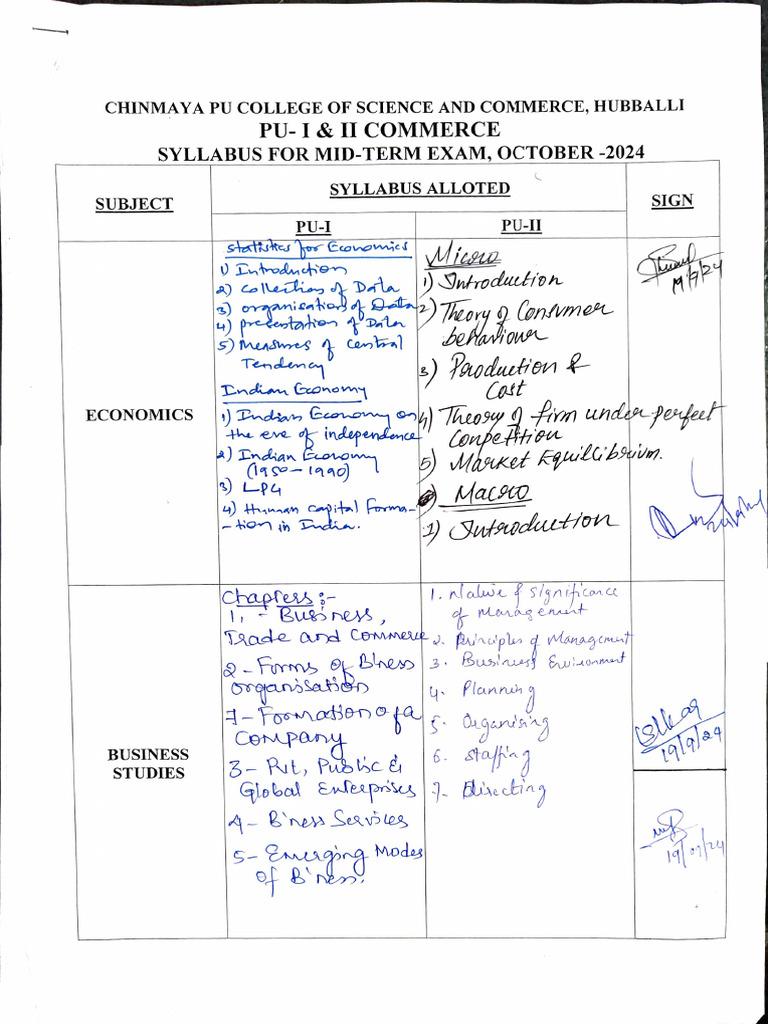 CHINMAYA PU COLLEGE OF SCIENCE AND COMMERCE, HUBBALLI
PU- I & II COMMERCE
SYLLABUS FOR MID-TERM EXAM, OCTOBER -2024
SUBJECT
SYLLABUS ALLOTED
SIGN
PU-I
PU-II
ECONOMICS
Statistics for Economics
1) Introduction
2) collection of Data
3) organisation of Data
4) presentation of Data
5) Measures of central
Tendency
Indian Economy
1) Indian Economy on
the eve of independence
2) Indian Economy
(1950-1990)
3) LPG
4) Human capital Forma-
-tion in India.
Micro
1) Introduction
2) Theory of Consumer
behaviour
3) Production &
Cost
4) Theory of firm under perfect
Conpetition
5) Market Equillibrium.
Macro
1) Introduction
19/9/24
BUSINESS
STUDIES
Chapters :-
1, - Business,
Trade and Commerce
2 - Forms of B'ness
organisation
7 - Formation of a
Company
3 - Pvt, Public &
Global Enterprises
4 - B'ness Services
5 - Emerging Modes
of B'ness.
1. Nature & Significance
of Management
2. Principles of Management
3. Business Environment
4. Planning
5. Organising
6. Staffing
7. Directing
19/9/24
19/09/24